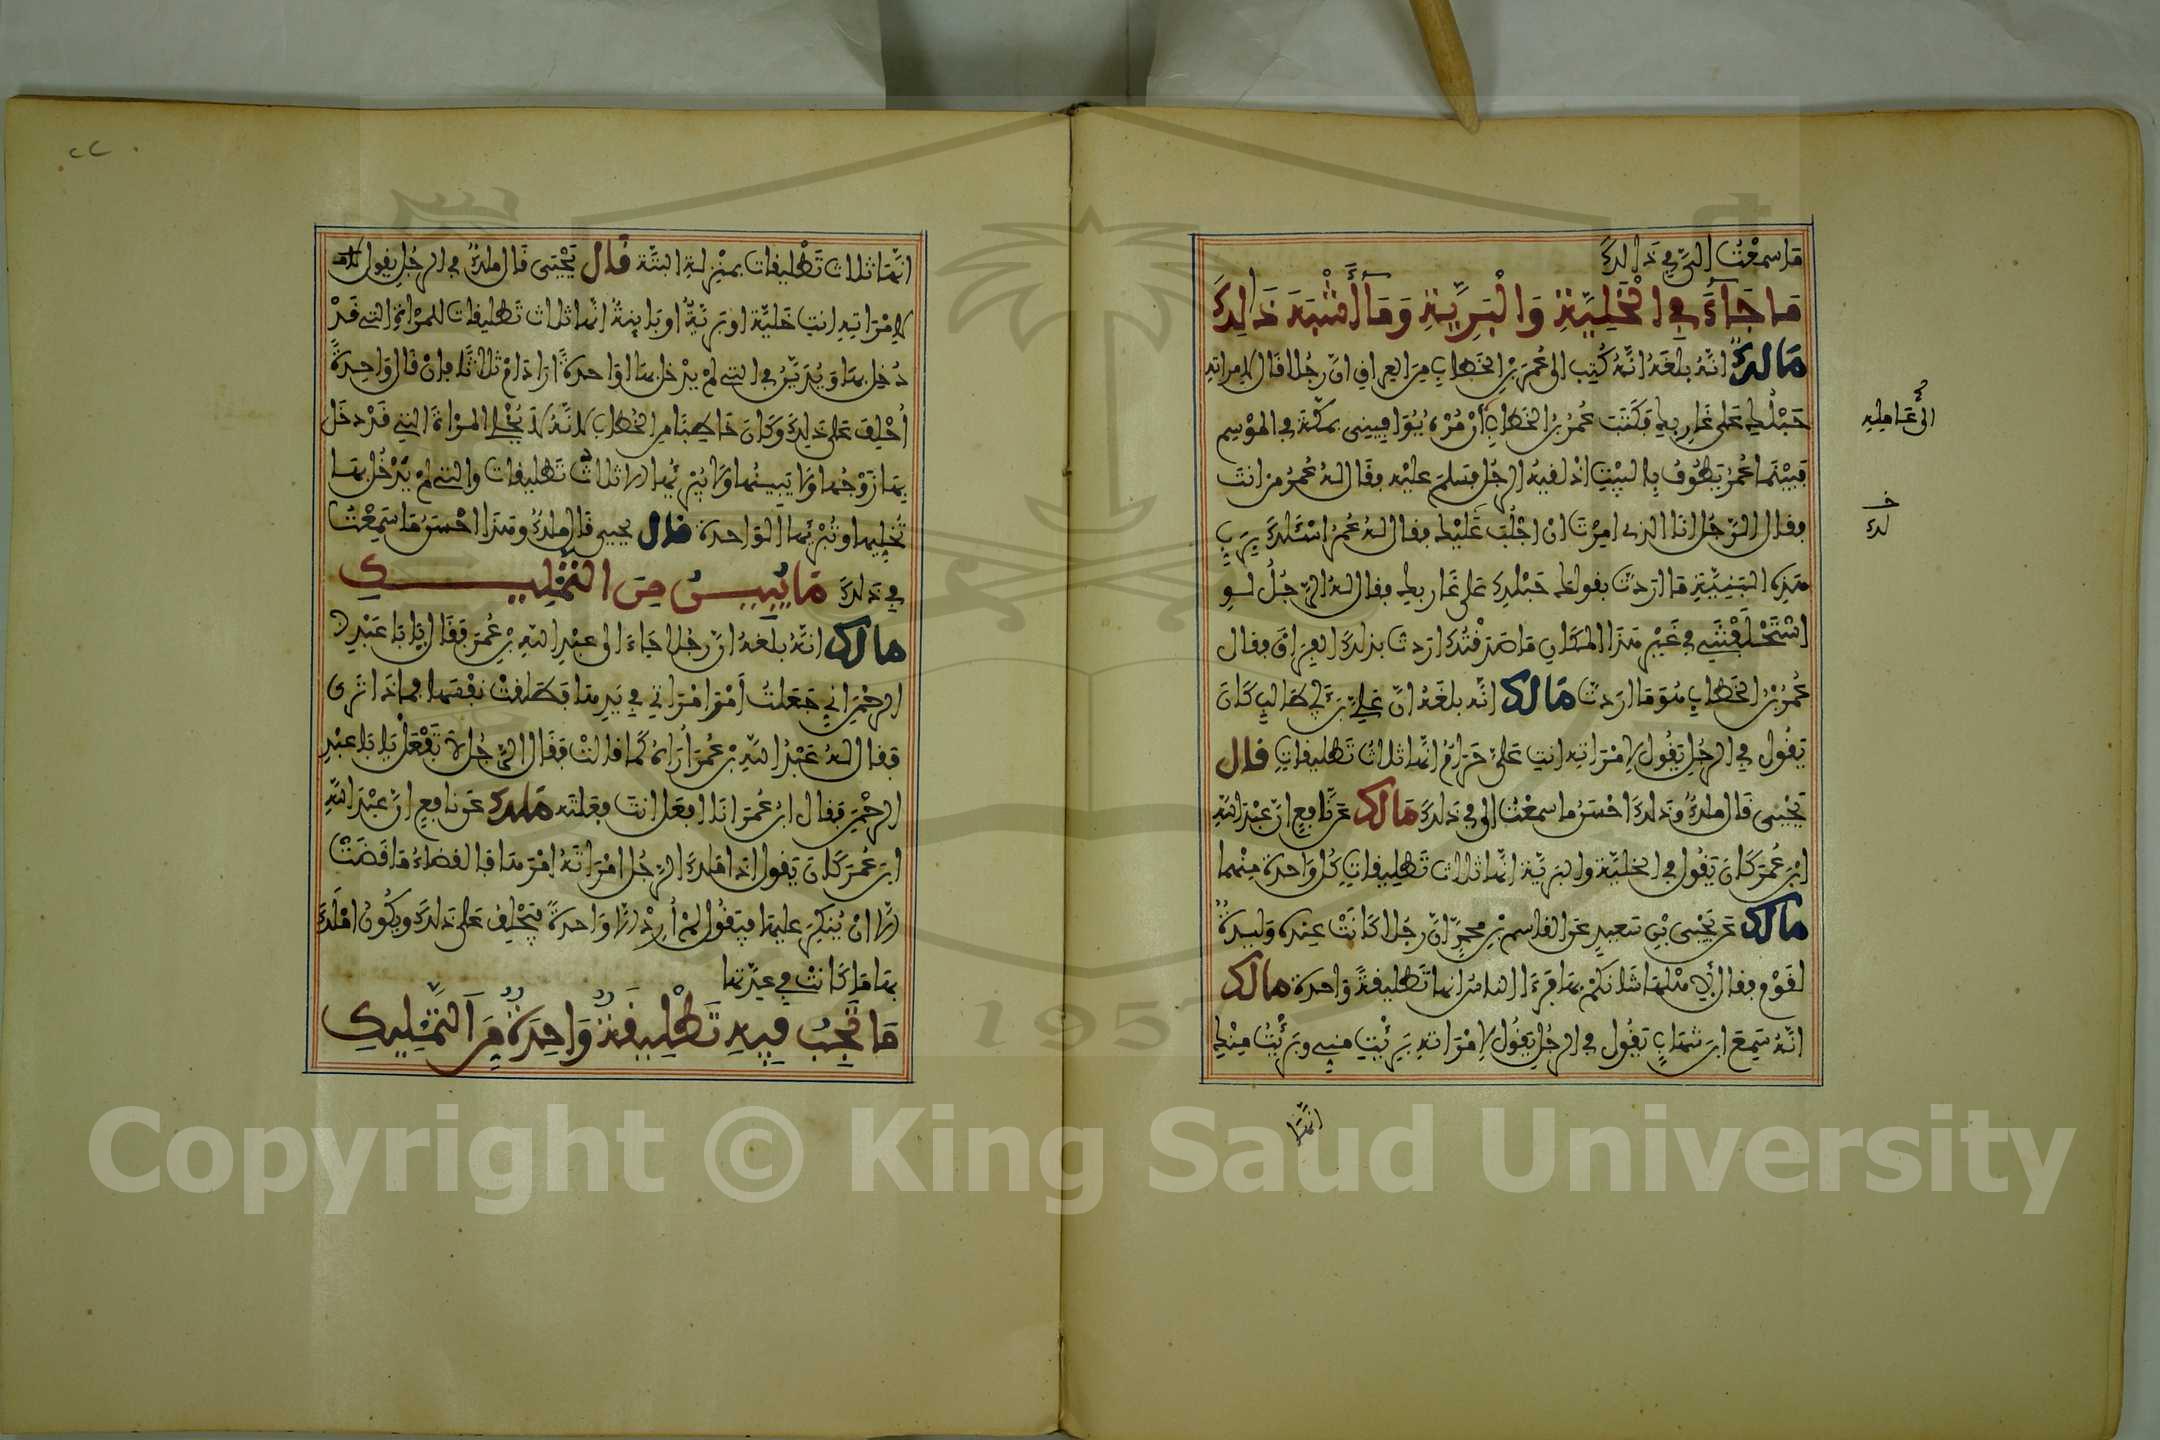 ما سمعت الي في ذالك
ما جاء في الخلية والبرية وما أشبه ذالك
مالك انه بلغه انه كتب الى عمر بن الخطاب من العراق ان رجلا قال لامراته
حبلك على غاربك فكتب عمر بن الخطاب ان مره يوافيني بمكة في الموسم
فبينما عمر يطوف بالبيت اذ لقيه الرجل فسلم عليه فقال له عمر من انت
فقال الرجل انا الذي امرت ان اجلب عليك فقال له عمر اسئلك برب
هذه البنية ما اردت بقولك حبلك على غاربك فقال له الرجل لو
استحلفتني في غير هذا المكان ما صدقتك اردت بذلك الفراق فقال
عمر بن الخطاب هو ما اردت مالك انه بلغه ان علي بن ابي طالب كان
يقول في الرجل يقول لامراته انت علي حرام انها ثلاث تطليقات قال
يحيى قال ملك وذلك احسن ما سمعت الي في ذلك مالك عن نافع ان عبد الله
ابن عمر كان يقول في الخلية والبرية انها ثلاث تطليقات كل واحدة منهما
مالك عن يحيى بن سعيد عن القاسم بن محمد ان رجلا كانت عنده وليدة
لقوم فقال لاهلها شانكم بها فرءا الناس انها تطليقة واحدة مالك
انه سمع ابن شهاب يقول في الرجل يقول لامراته برئت مني وبرئت منك
الى عامله
خ
لك
انها
٢٢
انها ثلاث تطليقات بمنزلة البتة قال يحيى قال ملك في الرجل يقول
لامراته انت خلية او برية او باينة انها ثلاث تطليقات للمراة التي قد
دخل بها ويدين في التي لم يدخل بها اواحدة اراد ام ثلاثا فان قال واحدة
احلف على ذلك وكان خاطبا من الخطاب لانه لا يخلي المراة التي قد دخل
بها زوجها ولا يبينها ولا يبريها الا ثلاث تطليقات والتي لم يدخل بها
تخليها وتبريها الواحدة قال يحيى قال ملك وهذا احسن ما سمعت
في ذلك ما يبين من التمليك
مالك انه بلغه ان رجلا جاء الى عبد الله بن عمر فقال يا با عبد
الرحمن اني جعلت امر امراتي في يدها فطلقت نفسها فماذا ترى
فقال له عبد الله بن عمر اراه كما قالت فقال الرجل لا تفعل يا با عبد
الرحمن فقال ابن عمر انا افعل انت فعلته ملك عن نافع ان عبد الله
ابن عمر كان يقول اذا ملك الرجل امراته امرها فالقضاء ما قضت
الا ان ينكر عليها فيقول لم ارد الا واحدة فيحلف على ذلك ويكون املك
بها ما كانت في عدتها
ما تجب فيه تطليقة واحدة من التمليك
Copyright © King Saud University
195